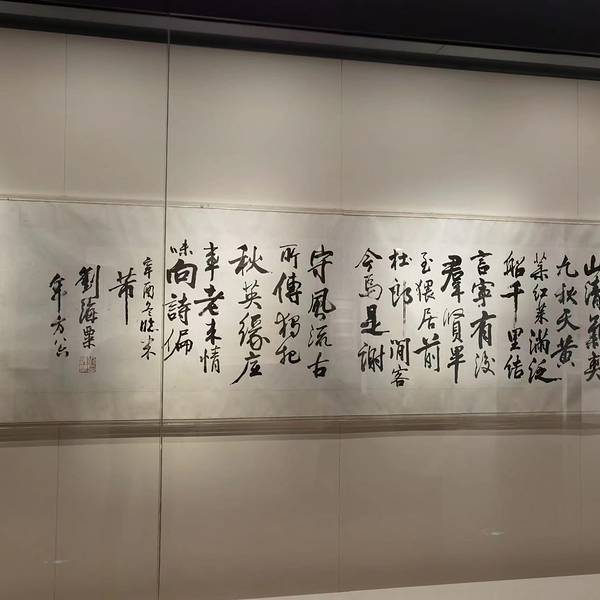 山清氣爽
九秋天黃
菊紅茱滿泛
船千里结
言寧有後
羣賢畢
至猥居前
杜郎閒客
今焉是謝
守風流古
所傳獨把
秋英緣底
事老来情
味向詩偏
辛酉冬臨米
芾
劉海粟
年方八六